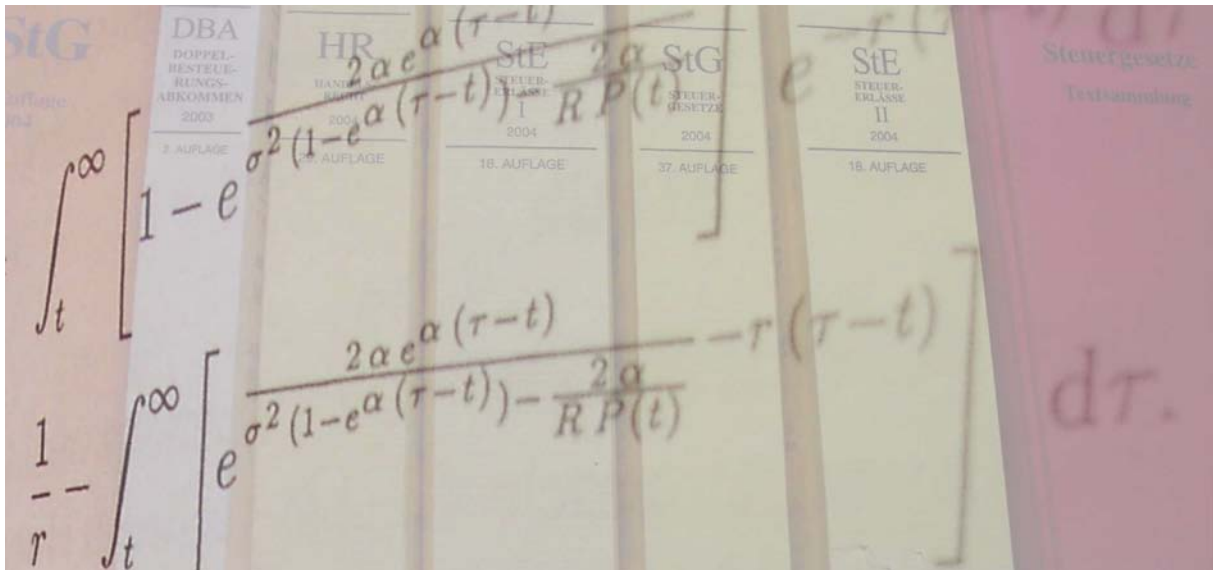 StG
DBA
DOPPEL-
BESTEUE-
RUNGS-
ABKOMMEN
2003
2. AUFLAGE
HR
HANDELS-
RECHT
2004
AUFLAGE
StE
STEUER-
ERLÄSSE
I
2004
16. AUFLAGE
StG
STEUER-
GESETZE
2004
37. AUFLAGE
StE
STEUER-
ERLÄSSE
II
2004
18. AUFLAGE
Steuergesetze
Textsammlung
∫_t^∞ [1 − e^{\frac{2 α e^{α (τ−t)}}{σ^2 (1−e^{α (τ−t)}) − \frac{2 α}{R P(t)}}}] e^{−r (τ−t)} dτ
\frac{1}{r} − ∫_t^∞ [e^{\frac{2 α e^{α (τ−t)}}{σ^2 (1−e^{α (τ−t)}) − \frac{2 α}{R P(t)}} − r (τ−t)}] dτ.